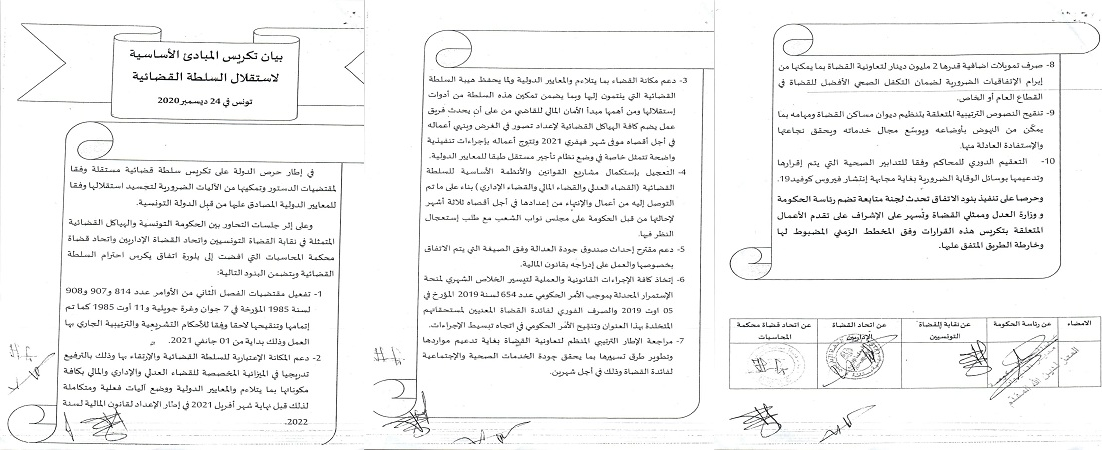 بيان تكريس المبادئ الأساسية
لاستقلال السلطة القضائية
تونس في 24 ديسمبر 2020
في إطار حرص الدولة على تكريس سلطة قضائية مستقلة وفقا
لمقتضيات الدستور وتمكينها من الآليات الضرورية لتجسيد استقلالها وفقا
للمعايير الدولية المصادق عليها من قبل الدولة التونسية.
وعلى إثر جلسات التحاور بين الحكومة التونسية والهياكل القضائية
المتمثلة في نقابة القضاة التونسيين واتحاد القضاة الإداريين واتحاد قضاة
محكمة المحاسبات التي افضت إلى بلورة اتفاق يكرس احترام السلطة
القضائية ويتضمن البنود التالية:
1- تفعيل مقتضيات الفصل الثاني من الأوامر عدد 814 و907 و908
لسنة 1985 المؤرخة في 7 جوان وغرة جويلية و11 أوت 1985 كما تم
إتمامها وتنقيحها لاحقا وفقا للأحكام التشريعية والترتيبية الجاري بها
العمل وذلك بداية من 01 جانفي 2021.
2- دعم المكانة الإعتبارية للسلطة القضائية والإرتقاء بها وذلك بالترفيع
تدريجيا في الميزانية المخصصة للقضاء العدلي والإداري والمالي بكافة
مكوناتها بما يتلاءم والمعايير الدولية ووضع آليات فعلية ومتكاملة
لذلك قبل نهاية شهر أفريل 2021 في إطار الإعداد لقانون المالية لسنة
2022.
3- دعم مكانة القضاء بما يتلاءم والمعايير الدولية ولما يحفظ هيبة السلطة
القضائية التي ينتمون إليها وبما يضمن تمكين هذه السلطة من أدوات
إستقلالها ومن أهمها مبدأ الأمان المالي للقاضي من على أن يحدث فريق
عمل يضم كافة الهياكل القضائية لإعداد تصور في الغرض وينهي أعماله
في أجل أقصاه موفى شهر فيفري 2021 وتتوج أعماله بإجراءات تنفيذية
واضحة تتمثل خاصة في وضع نظام تأجير مستقل طبقا للمعايير الدولية.
4- التعجيل بإستكمال مشاريع القوانين والأنظمة الأساسية للسلطة
القضائية (القضاء العدلي والقضاء المالي والقضاء الإداري) بناء على ما تم
التوصل إليه من أعمال والإنتهاء من إعدادها في أجل أقصاه ثلاثة أشهر
لإحالتها من قبل الحكومة على مجلس نواب الشعب مع طلب إستعجال
النظر فيها.
5- دعم مقترح إحداث صندوق جودة العدالة وفق الصيغة التي يتم الاتفاق
بخصوصها والعمل على إدراجه بقانون المالية.
6- إتخاذ كافة الإجراءات القانونية والعملية لتيسير الخلاص الشهري لمنحة
الإستمرار المحدثة بموجب الأمر الحكومي عدد 654 لسنة 2019 المؤرخ في
05 أوت 2019 والصرف الفوري لفائدة القضاة المعنيين لمستحقاتهم
المتخلدة بهذا العنوان وتنقيح الأمر الحكومي في اتجاه تبسيط الإجراءات.
7- مراجعة الإطار الترتيبي المنظم لتعاونية القضاة بغاية تدعيم مواردها
وتطوير طرق تسييرها بما يحقق جودة الخدمات الصحية والإجتماعية
لفائدة القضاة وذلك في أجل شهرين.
8- صرف تمويلات اضافية قدرها 2 مليون دينار لتعاونية القضاة بما يمكنها من
إبرام الإتفاقيات الضرورية لضمان التكفل الصحي الأفضل للقضاة في
القطاع العام أو الخاص.
9- تنقيح النصوص الترتيبية المتعلقة بتنظيم ديوان مساكن القضاة ومهامه بما
يمكّن من النهوض بأوضاعه ويوسّع مجال خدماته ويحقق نجاعتها
والإستفادة العادلة منها.
10- التعقيم الدوري للمحاكم وفقا للتدابير الصحية التي يتم إقرارها
وتدعيمها بوسائل الوقاية الضرورية بغاية مجابهة إنتشار فيروس كوفيد19.
وحرصا على تنفيذ بنود الاتفاق تحدث لجنة متابعة تضم رئاسة الحكومة
و وزارة العدل وممثلي القضاة وتُسهر على الإشراف على تقدم الأعمال
المتعلقة بتكريس هذه القرارات وفق المخطط الزمني المضبوط لها
وخارطة الطريق المتفق عليها.
الامضاء
عن رئاسة الحكومة
عن نقابة القضاة
التونسيين
عن اتحاد القضاة
الإداريين
عن اتحاد قضاة محكمة
المحاسبات